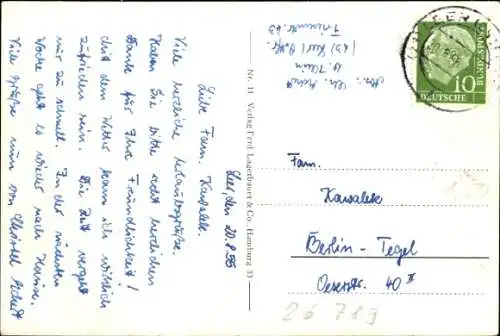 Leer, den 20.8.55
Liebe Fam. Kawalek.
Viele herzliche Urlaubsgrüße.
Haben Sie bitte recht herzlichen
Dank für Ihre Freundlichkeit!
Mit dem Wetter kann ich wirklich
zufrieden sein. Die Zeit vergeht
nur zu schnell. In der nächsten
Woche geht es wieder nach Hause.
Viele Grüße nun von Christel
Nr. 11 Verlag Ferd. Lagerbauer & Co., Hamburg 33
10
DEUTSCHE
BUNDESPOST
Fam.
Kawalek
Berlin-Tegel
40 II
26 789